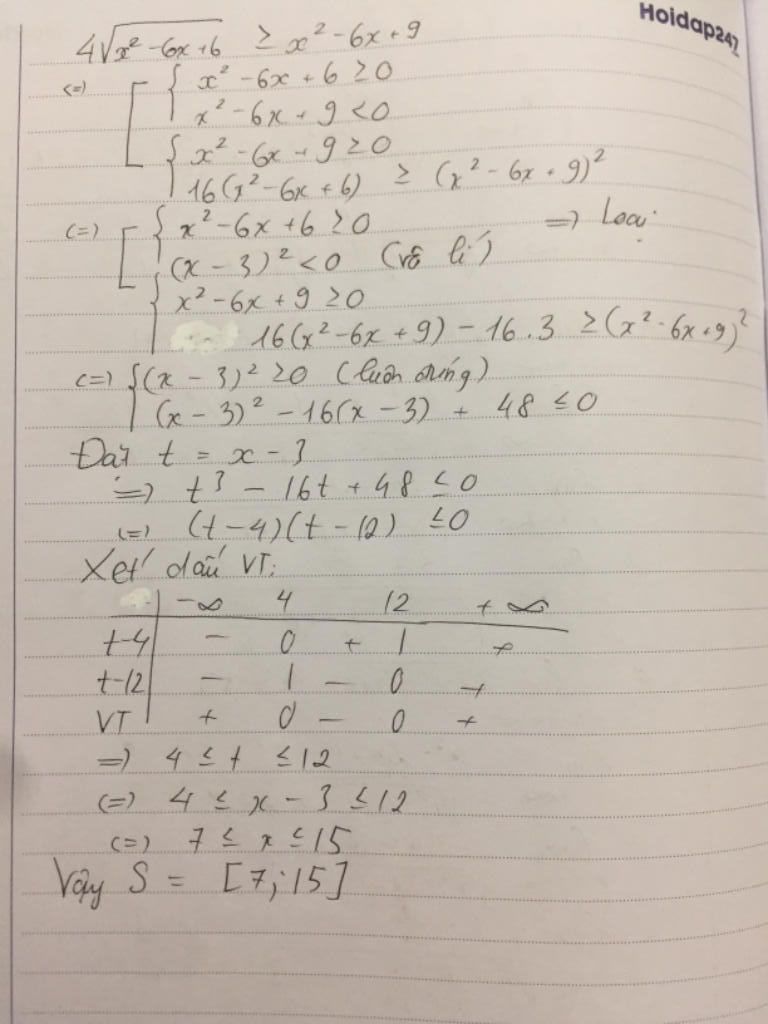 Hoidap247
4√(x² - 6x + 6) ≥ x² - 6x + 9
<=> [ { x² - 6x + 6 ≥ 0
x² - 6x + 9 < 0
{ x² - 6x + 9 ≥ 0
16(x² - 6x + 6) ≥ (x² - 6x + 9)²
(=) [ { x² - 6x + 6 ≥ 0 => Loại
(x - 3)² < 0 (vô lí)
{ x² - 6x + 9 ≥ 0
16(x² - 6x + 9) - 16.3 ≥ (x² - 6x + 9)²
(=) { (x - 3)² ≥ 0 (luôn đúng)
(x - 3)² - 16(x - 3) + 48 ≤ 0
Đặt t = x - 3
=> t² - 16t + 48 ≤ 0
(=) (t - 4)(t - 12) ≤ 0
Xét dấu VT:
| -∞ 4 12 +∞
t-4 | - 0 + | +
t-12 | - | - 0 +
VT | + 0 - 0 +
=) 4 ≤ t ≤ 12
(=) 4 ≤ x - 3 ≤ 12
(=) 7 ≤ x ≤ 15
Vậy S = [7; 15]